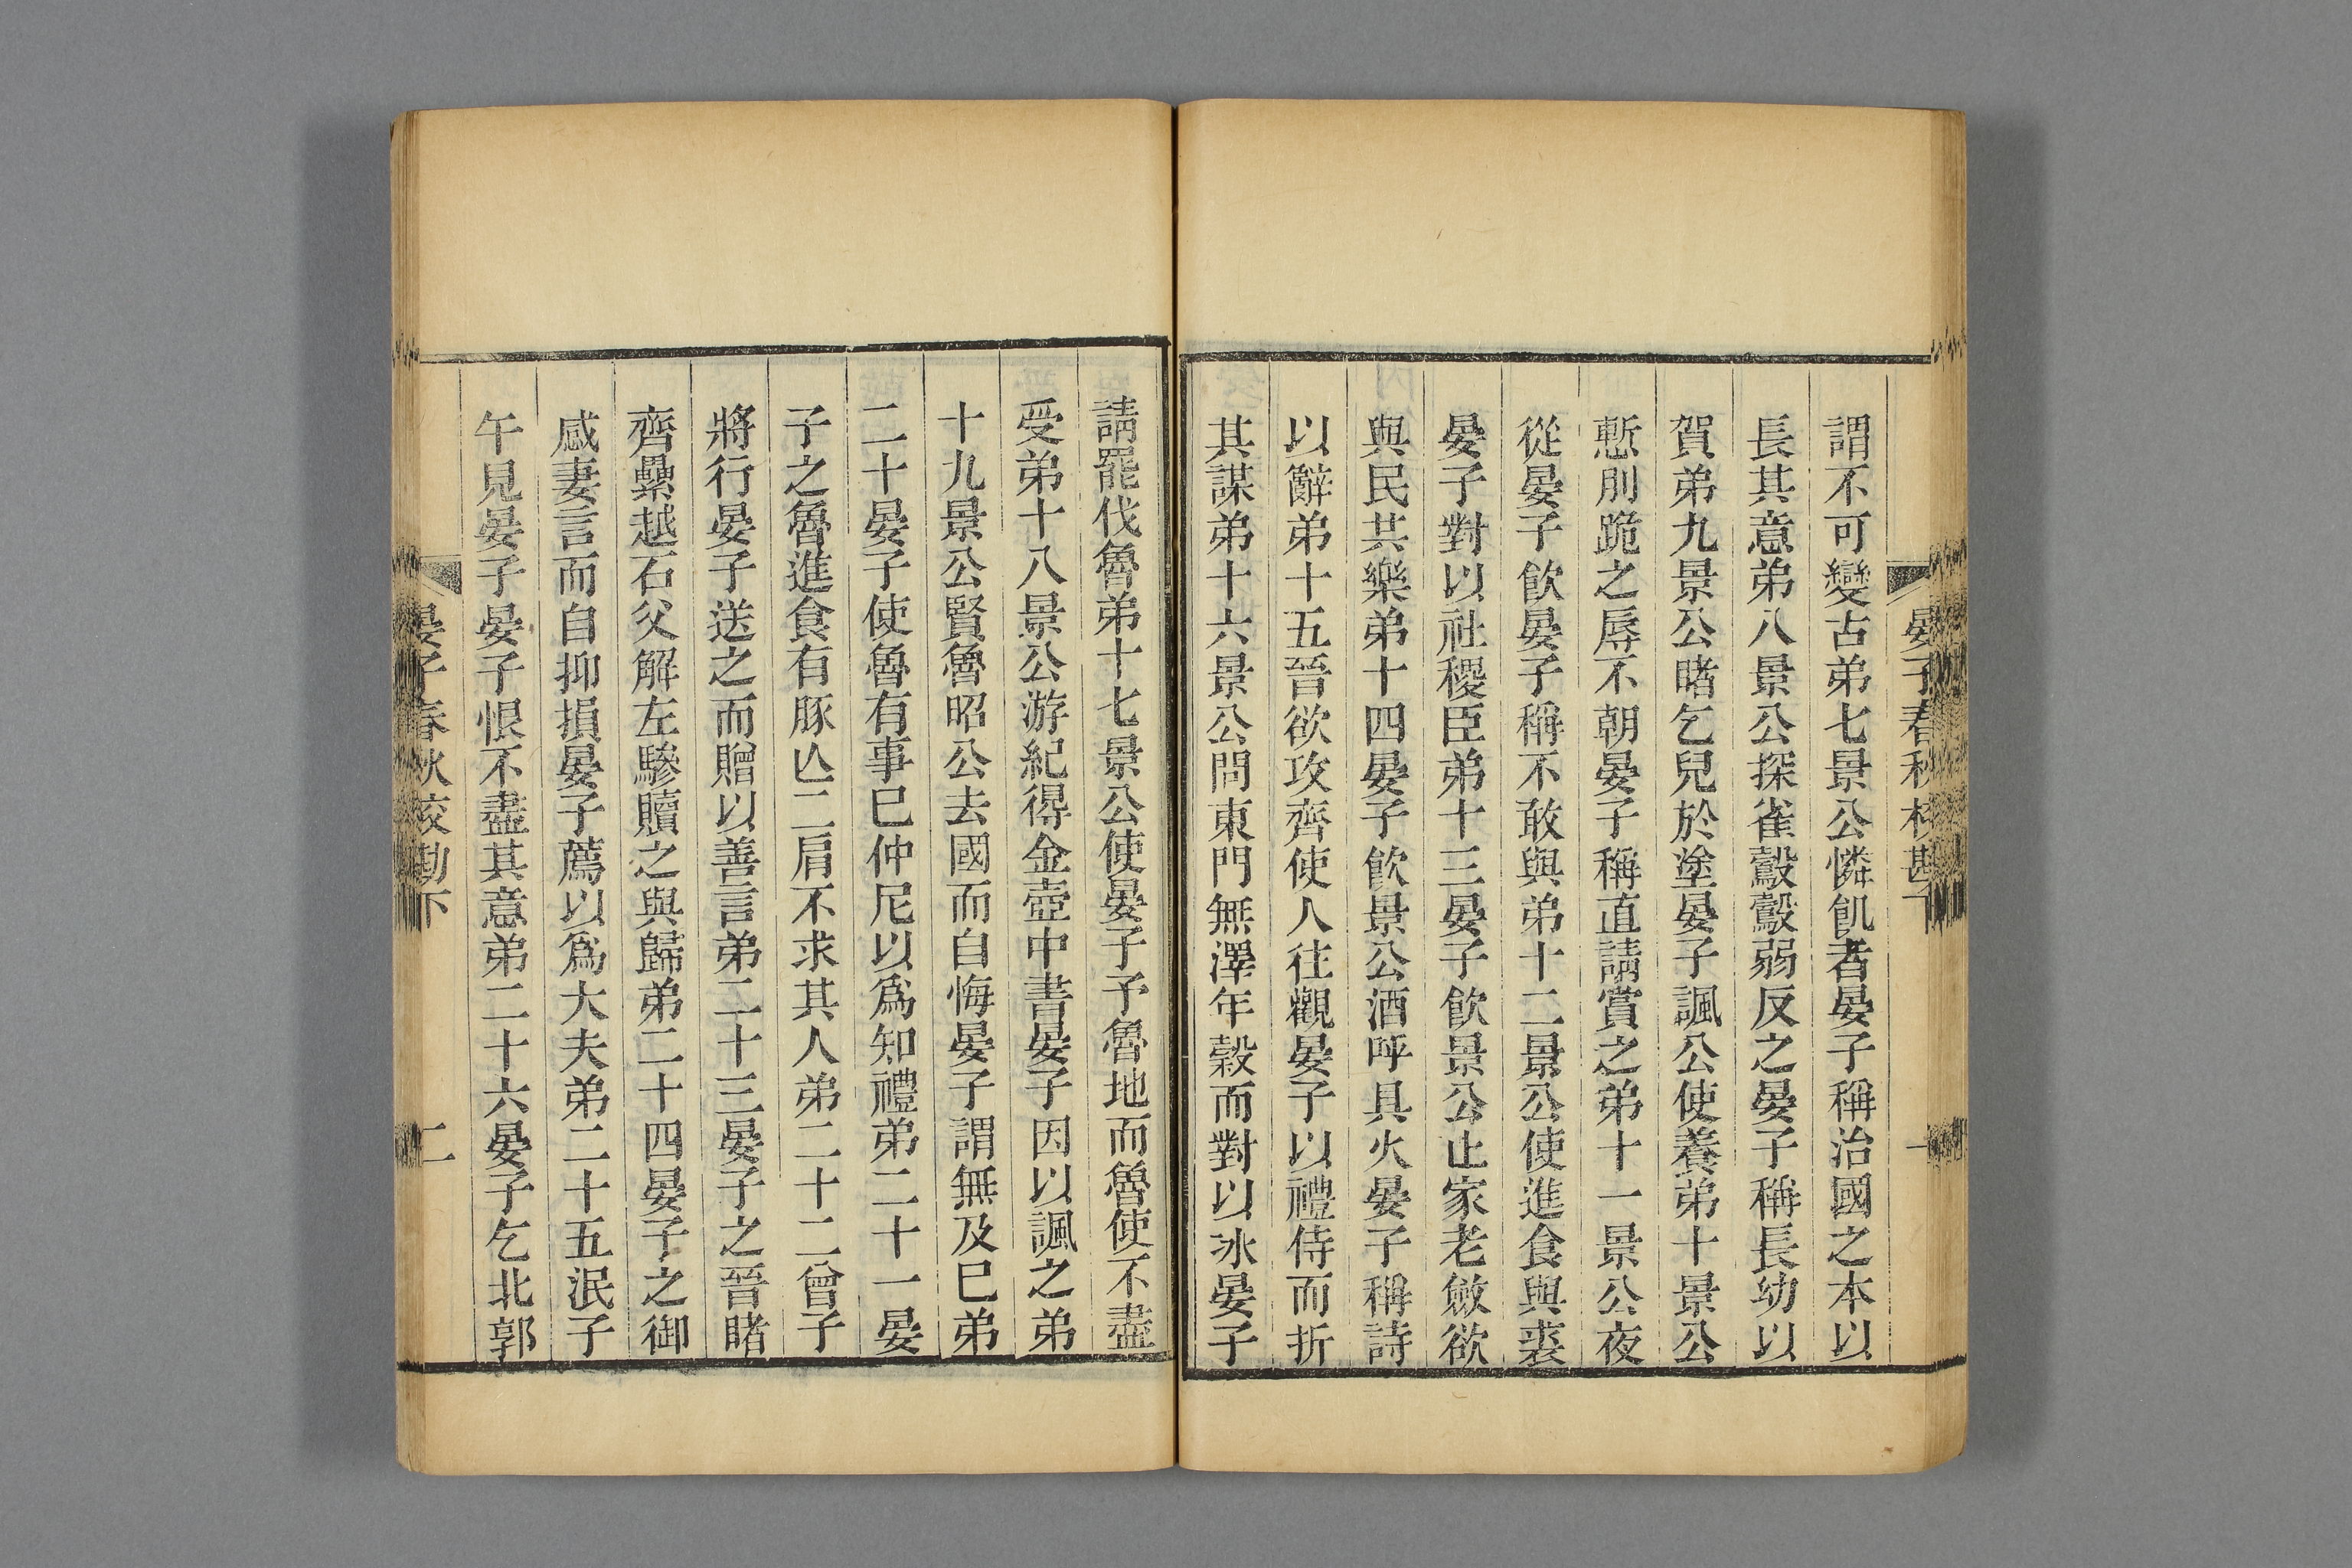 晏子春秋校勘下 一
謂不可變古弟七景公憐飢者晏子稱治國之本以
長其意弟八景公探雀鷇鷇弱反之晏子稱長幼以
賀弟九景公睹乞兒於塗晏子諷公使養弟十景公
慙刖跪之辱不朝晏子稱直請賞之弟十一景公夜
從晏子飮晏子稱不敢與弟十二景公使進食與裘
晏子對以社稷臣弟十三晏子飮景公止家老斂欲
與民共樂弟十四晏子飮景公酒呼具火晏子稱詩
以辭弟十五晉欲攻齊使人往觀晏子以禮侍而折
其謀弟十六景公問東門無澤年穀而對以冰晏子
請罷伐魯弟十七景公使晏子予魯地而魯使不盡
受弟十八景公游紀得金壺中書晏子因以諷之弟
十九景公賢魯昭公去國而自悔晏子謂無及已弟
二十晏子使魯有事已仲尼以爲知禮弟二十一晏
子之魯進食有豚亾二肩不求其人弟二十二曾子
將行晏子送之而贈以善言弟二十三晏子之晉睹
齊纍越石父解左驂贖之與歸弟二十四晏子之御
感妻言而自抑損晏子薦以爲大夫弟二十五泯子
午見晏子晏子恨不盡其意弟二十六晏子乞北郭
晏子春秋校勘下 二